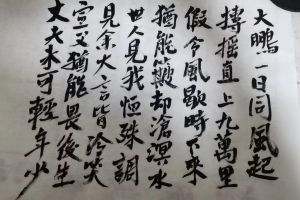 大鹏一日同風起
摶摇直上九萬里
假令風歇時下來
猶能簸却滄溟水
世人見我恒殊調
見余大言皆冷笑
宣父猶能畏後生
丈夫未可輕年少